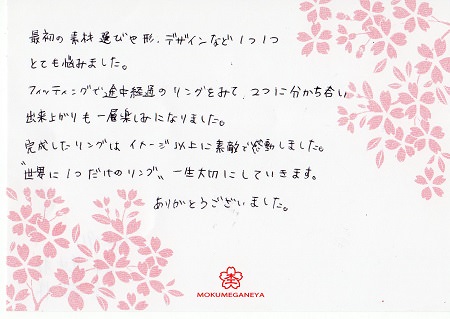 最初の素材選びや形、デザインなど1つ1つ
とても悩みました。
フィッティングで途中経過のリングをみて、2つに分かち合い
出来上がりも一層楽しみになりました。
完成したリングはイメージ以上に素敵で感動しました。
"世界に1つだけのリング" 一生大切にしていきます。
ありがとうございました。
MOKUMEGANEYA